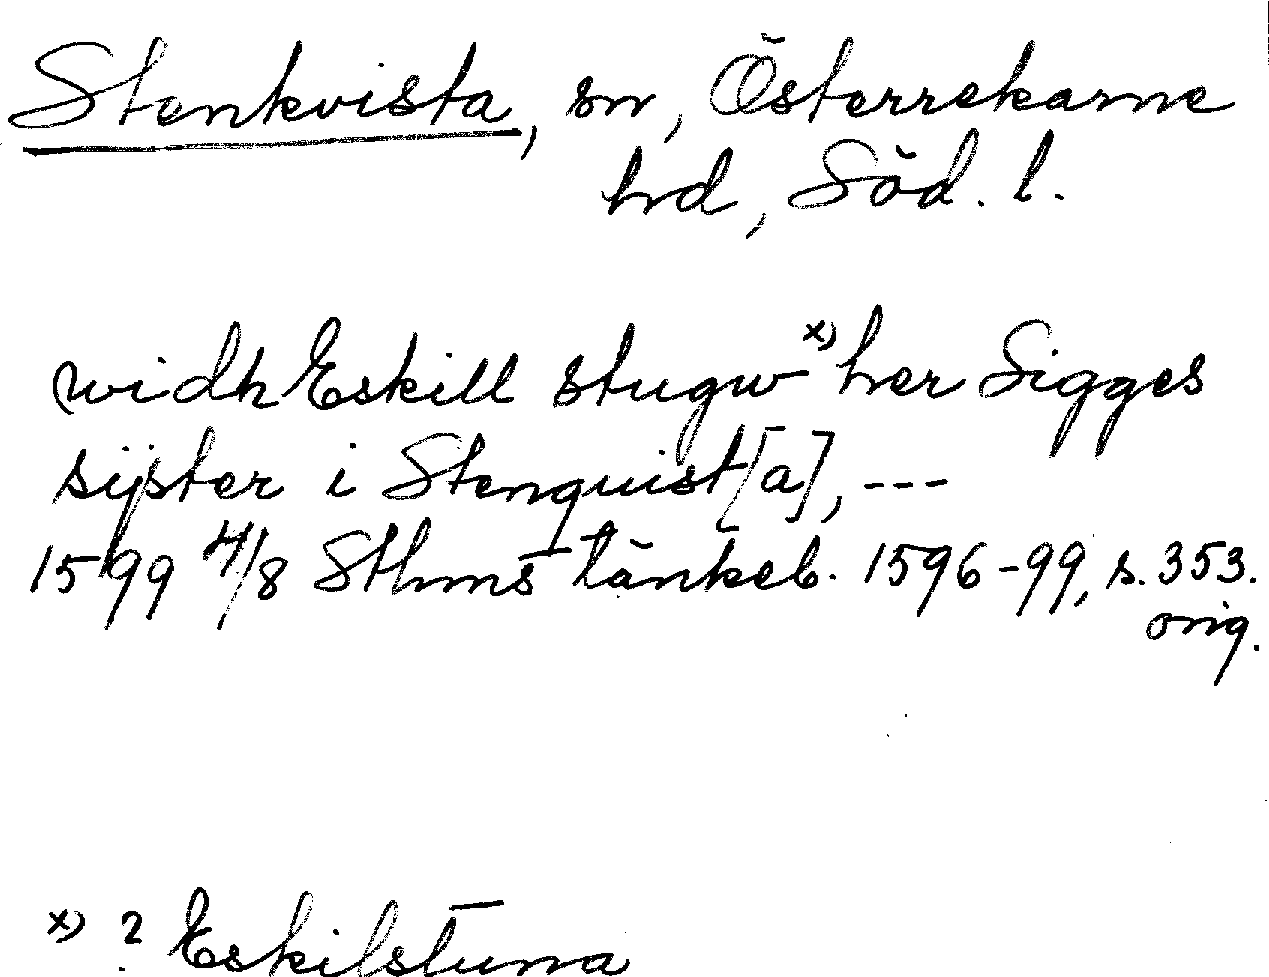 Stenkvista, sn, Österrekarne
hrd, Söd. l.
widh Eskill stugw x) her Sigges
sijster i Stenquist[a], ---
1599 4/8 Sthms tänkeb. 1596-99, s. 353.
orig.
x) ? Eskilstuna